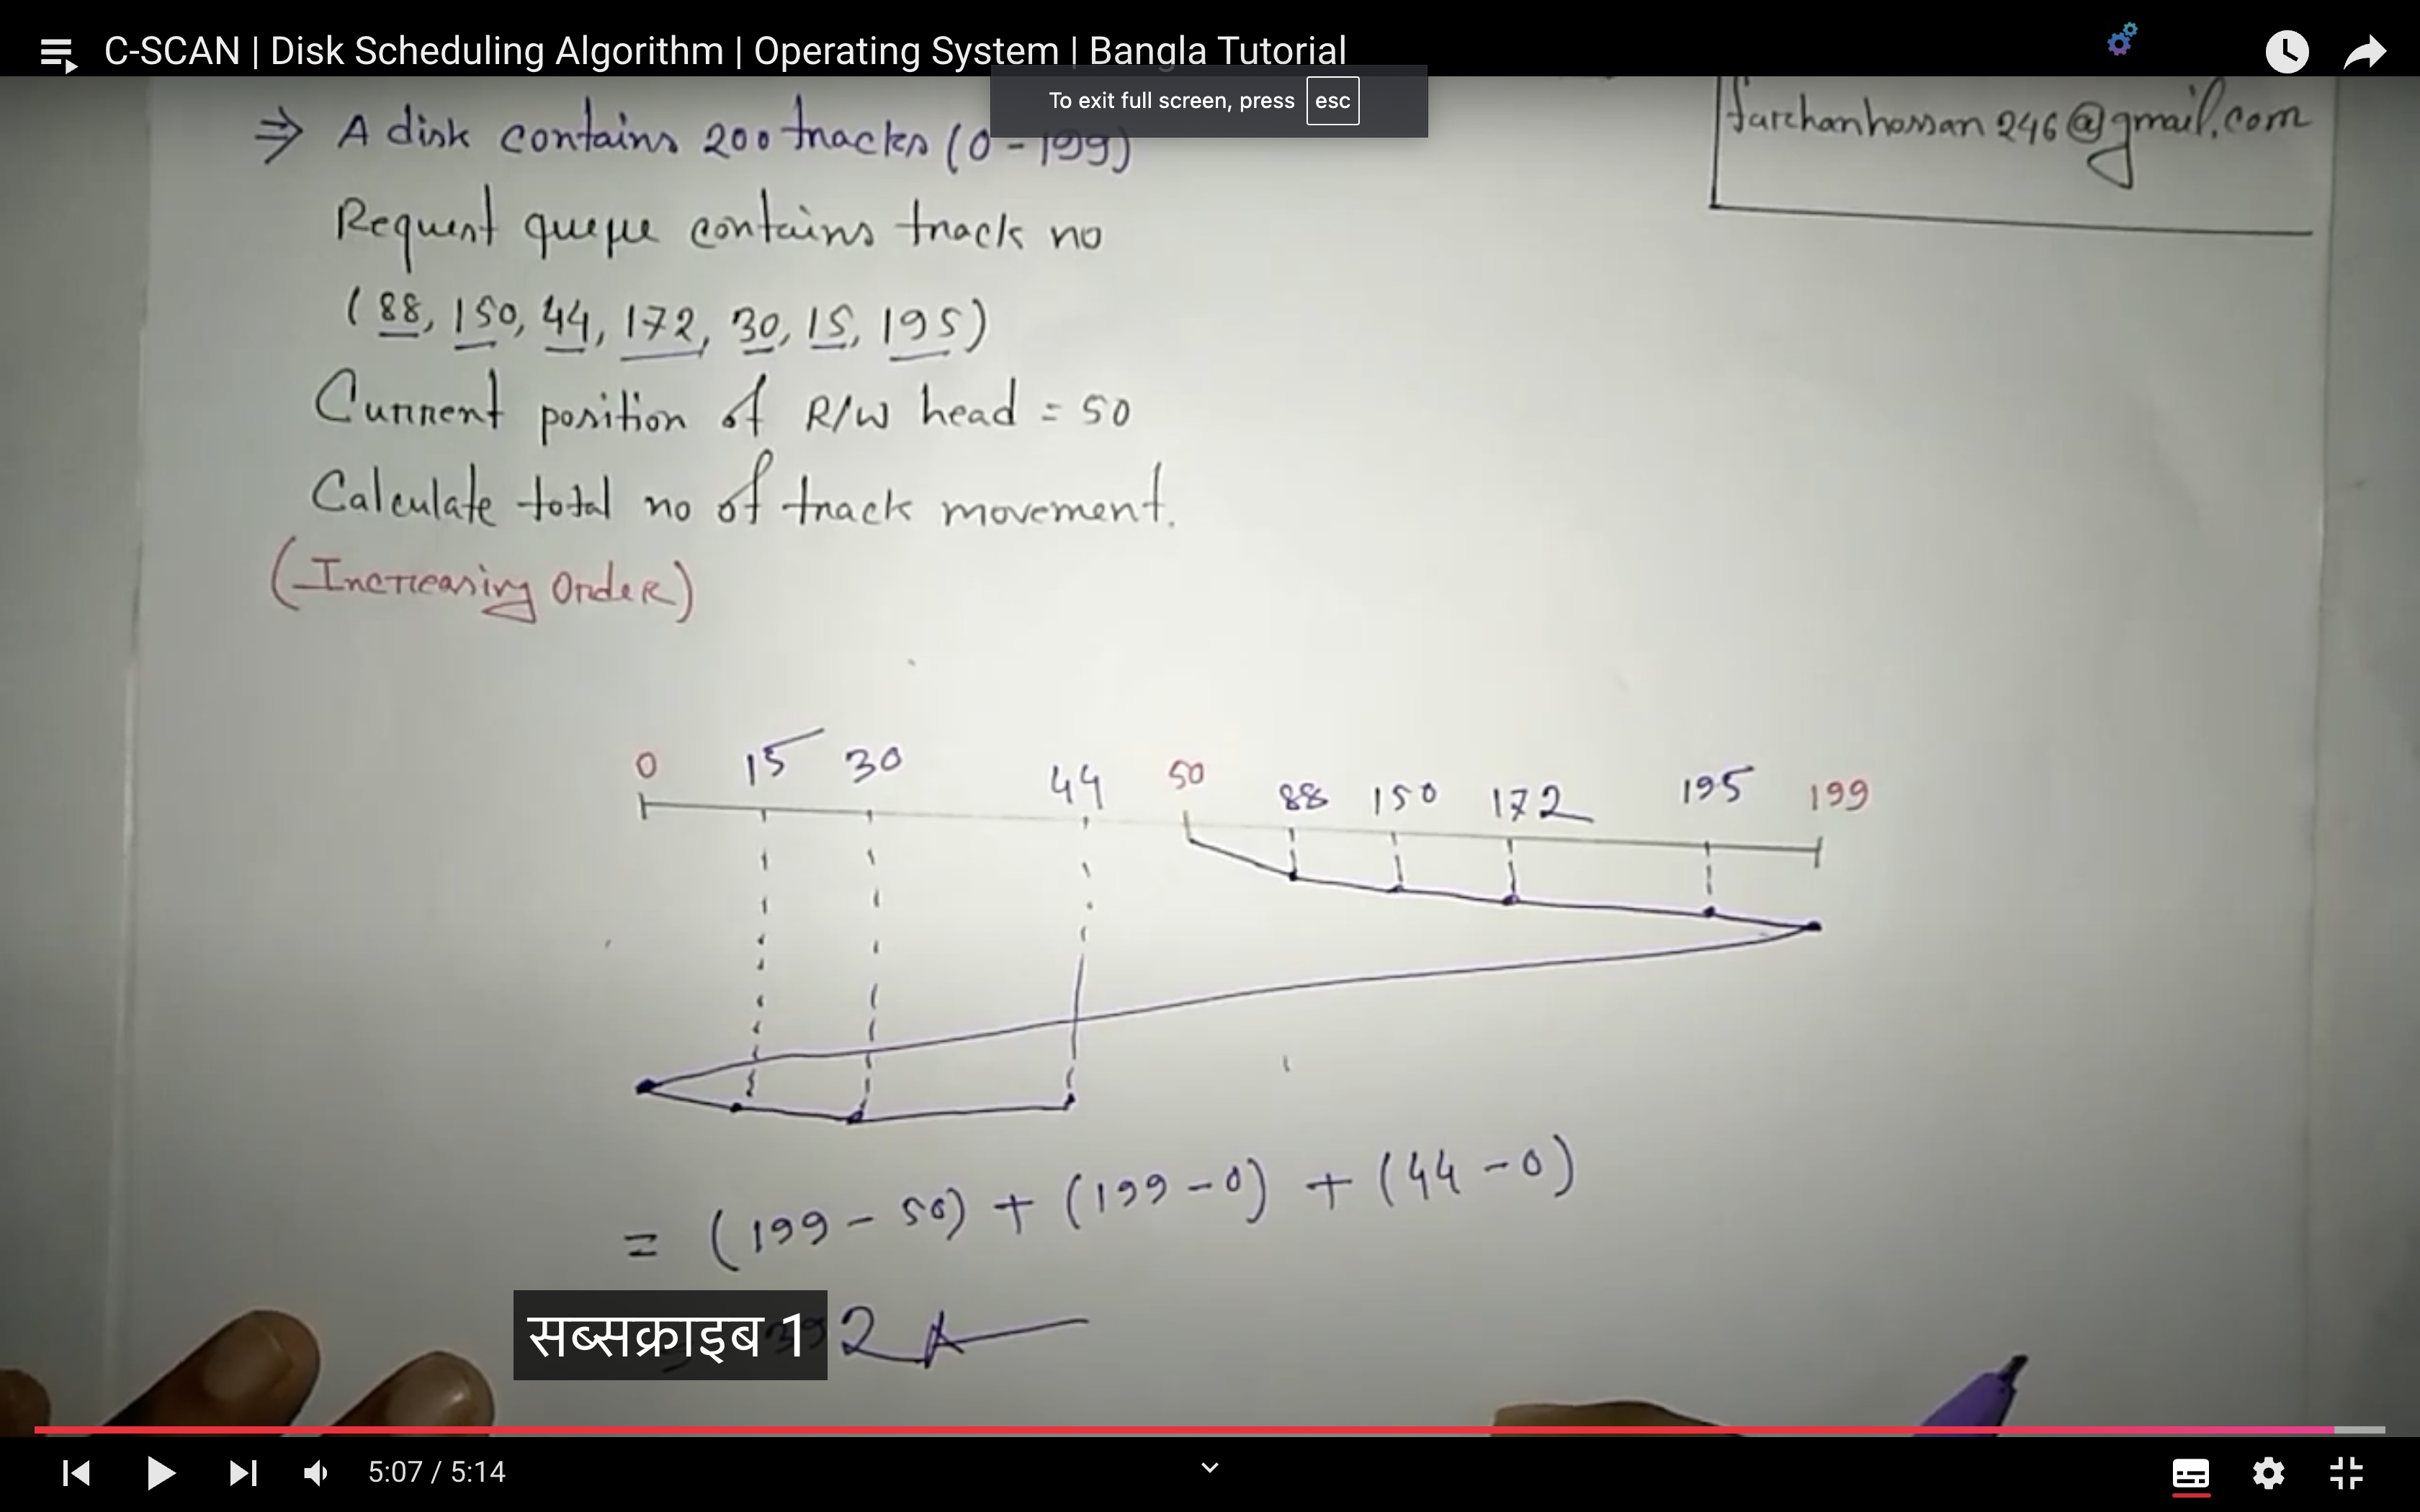 C-SCAN | Disk Scheduling Algorithm | Operating System | Bangla Tutorial
To exit full screen, press esc
⇒ A disk contains 200 tracks (0 - 199)
farhanhossan246@gmail.com
Request queue contains track no
(88, 150, 44, 172, 30, 15, 195)
Current position of R/W head = 50
Calculate total no of track movement.
(Increasing Order)
0 15 30 44 50 88 150 172 195 199
= (199 - 50) + (199 - 0) + (44 - 0)
सब्सक्राइब 1
392
5:07 / 5:14